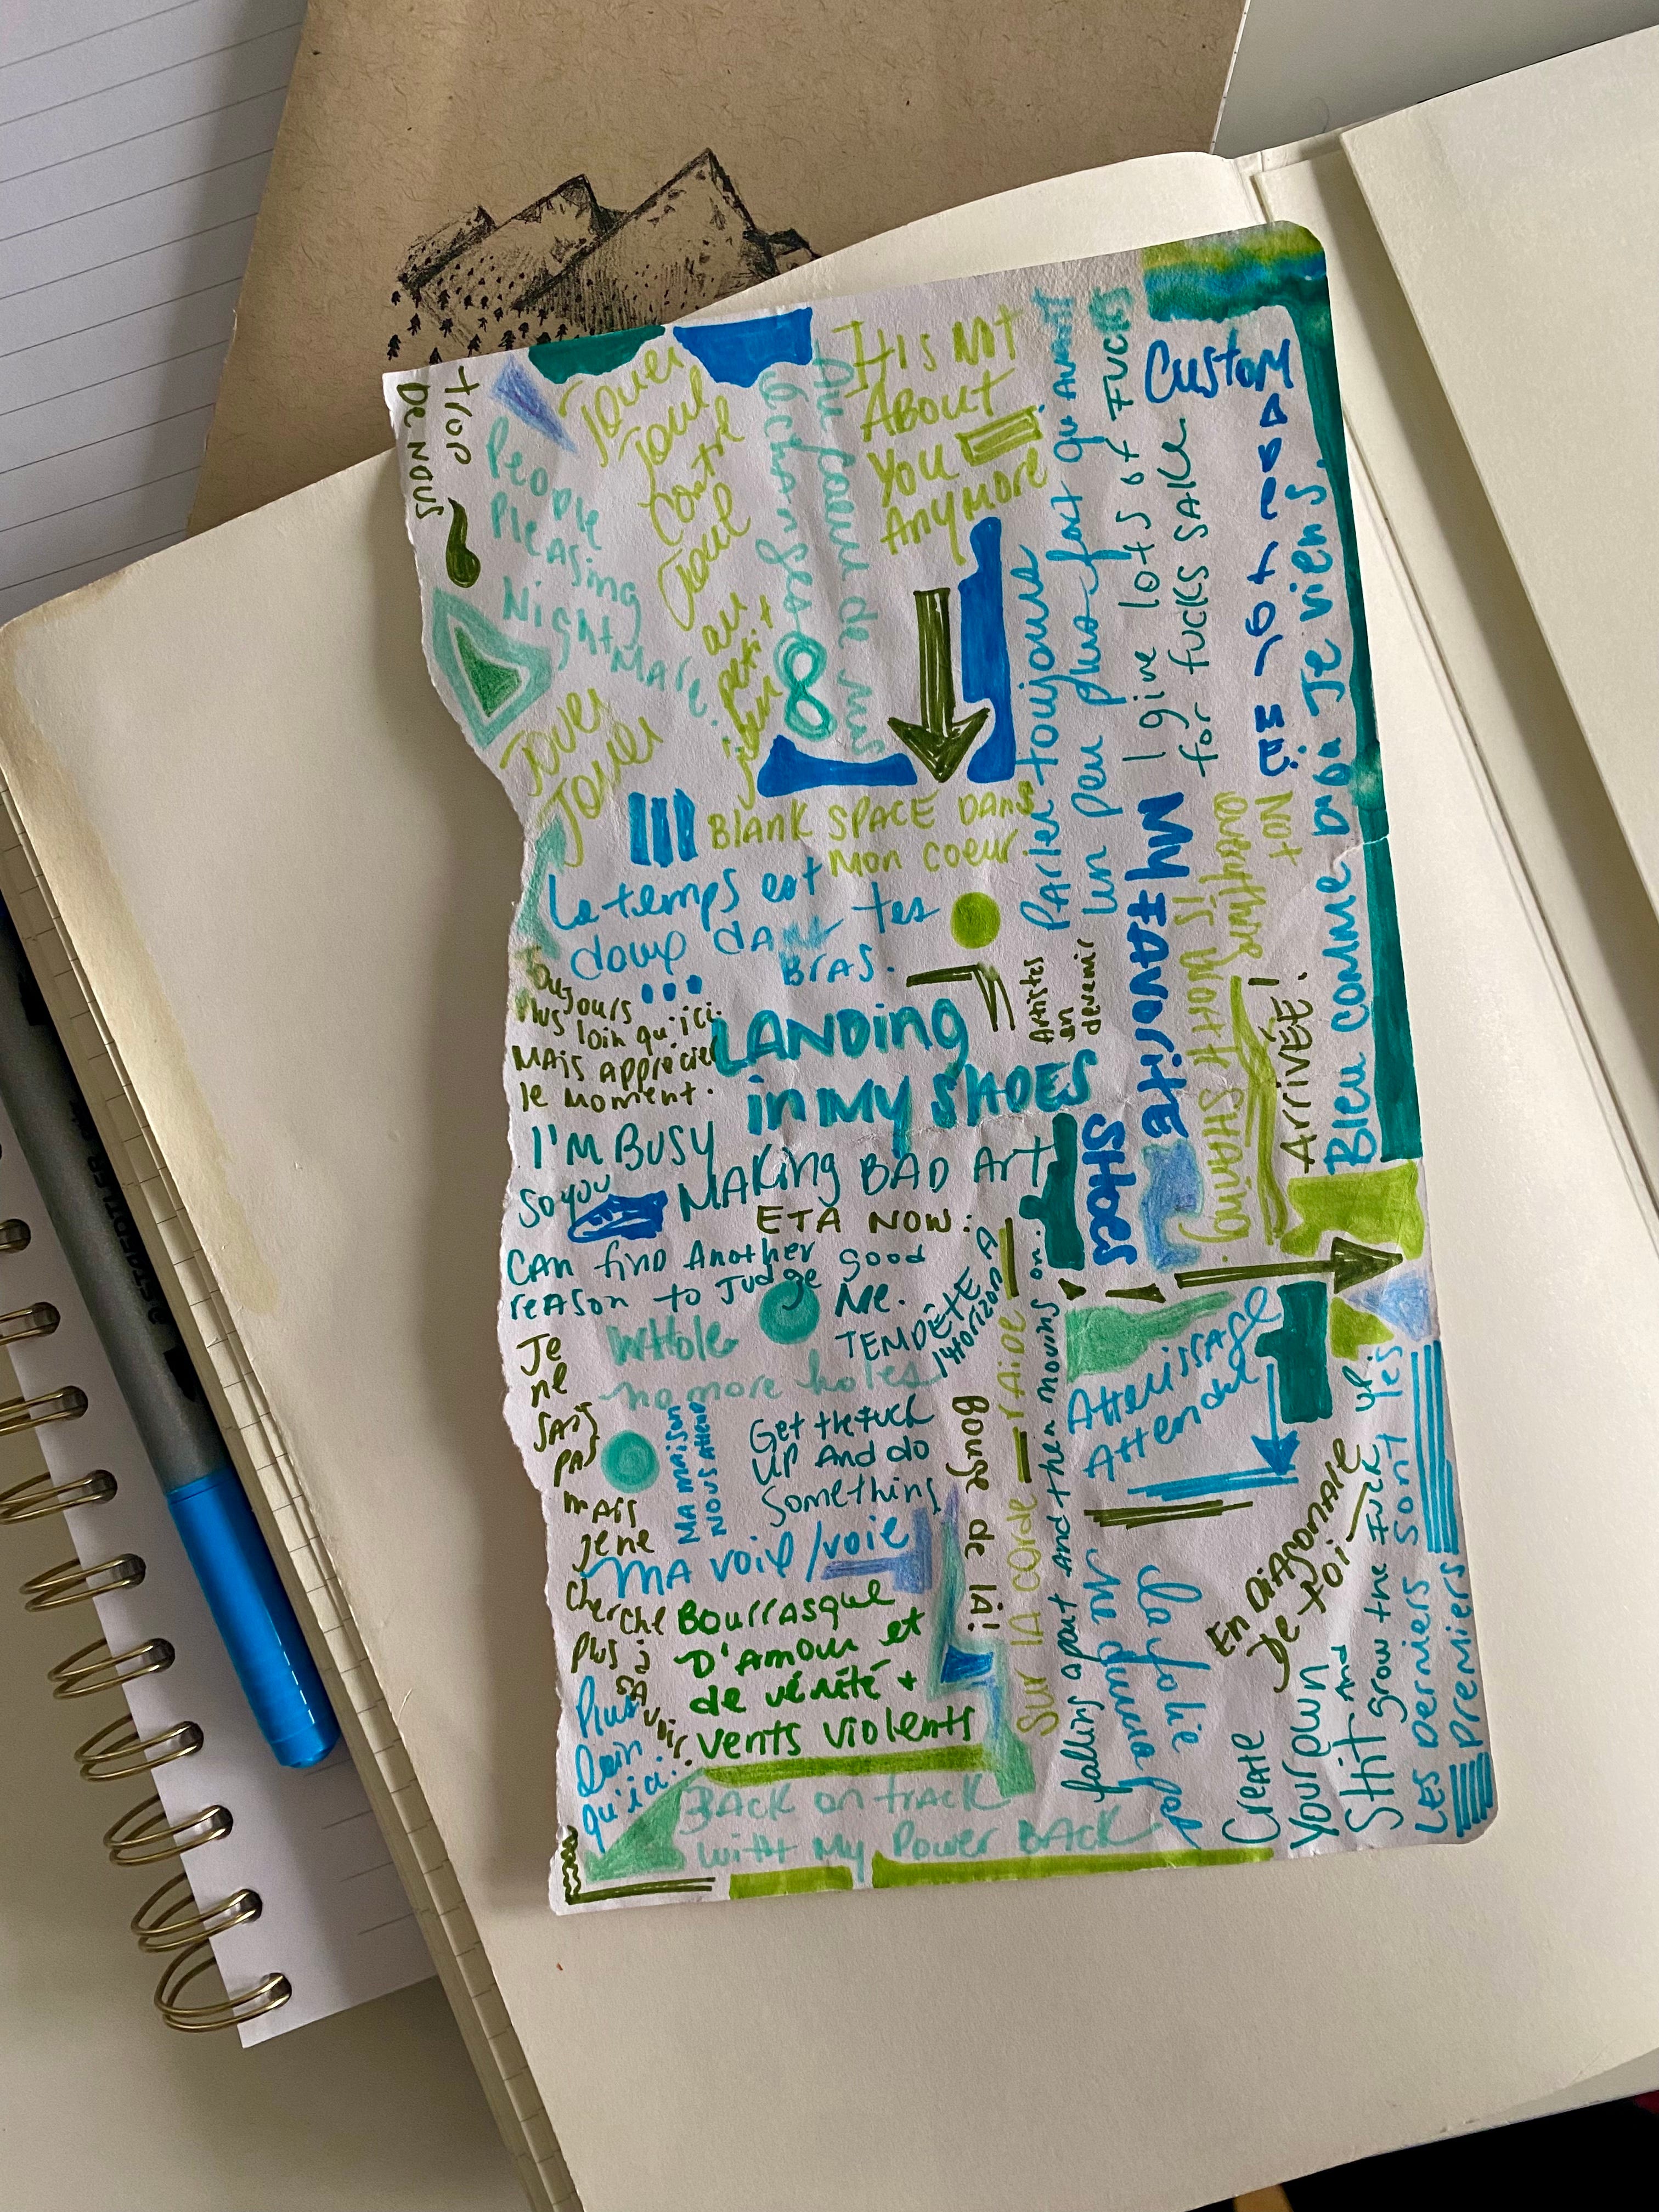 trop
De nous
People
Pleasing
Nightmare
Jouer
Joue
contre
Joue
au
petit
jeu
Jouer
Jouer
échanges
Au parfum de
It is not
About
You
Anymore
Parler toujours
un peu plus fort qu'avant
I give lots of fucks
for fucks sake
Custom
BLANK SPACE DANS
MON COEUR.
Le temps est
doux dans tes
BrAS.
Toujours
Plus loin qu'ici.
MAis Apprécier
le moment.
LANDing
in MY SHOES
Artistes
en
devenir
My FAVOrite
SHOES
Not
anything
is worth SHAring.
Arrivée!
Bleu comme Je viens.
I'M BUSY
MAKing BAD Art
So you
CAN find Another good
reason to Judge
Me.
ETA NOW:
TEMPÊTE À
l'Horizon
WHole
no more holes
Je
ne
SAis
pAS
mais
je ne
cherche
plus à
SAvoir.
MA maison
NOUS Attend
Get the fuck
UP And do
Something
MA voix/voie
Bouge de là!
Sur lA corde raide
falling apart and then moving on.
Atterrissage
Attendu
Bourrasque
D'Amour et
de vérité +
vents violents
Plus
loin
qu'ici.
BAck on track
with My Power BACK
La folie
ne durera pas
En DiAgonAle
De toi
Create
Your own
SHit And
grow the fuck up
Les Derniers sont les
premiers